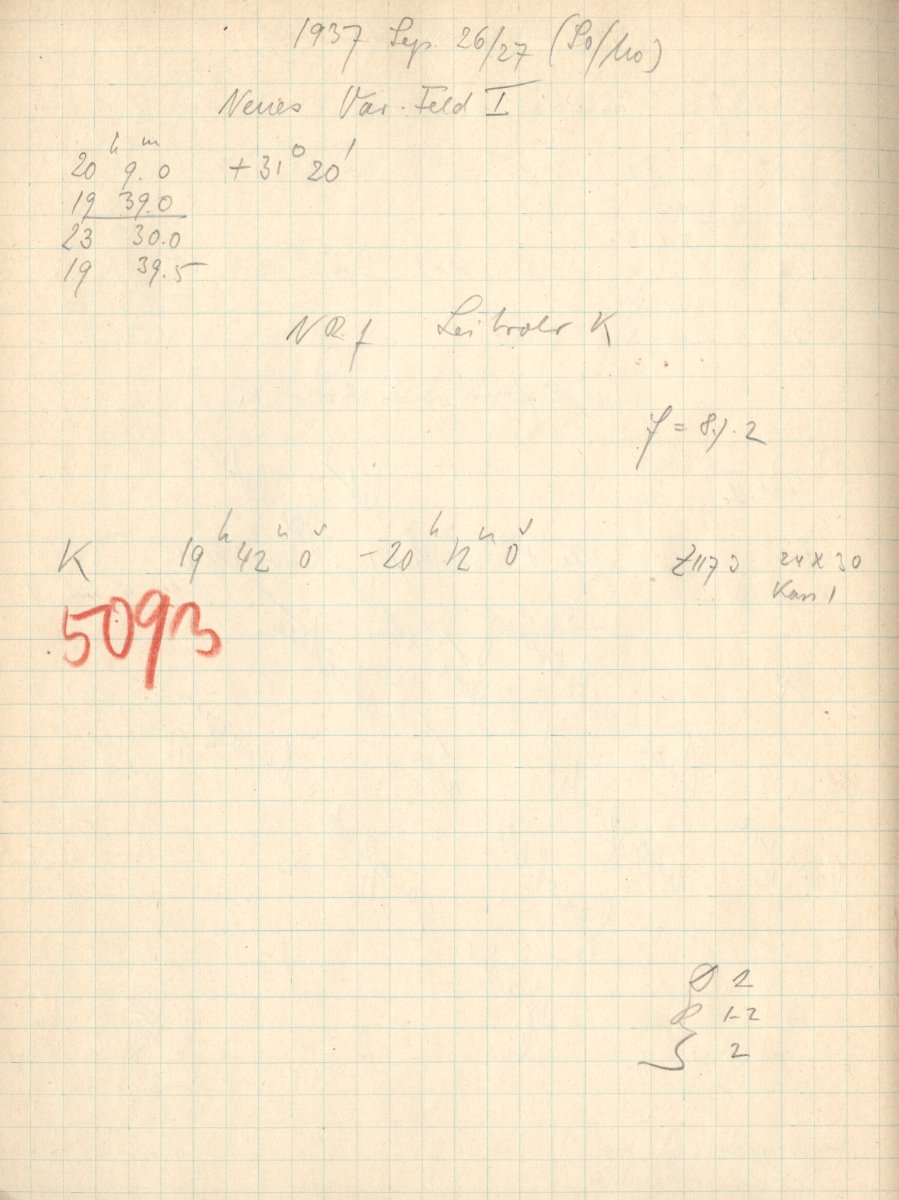 1937 Sep. 26/27 (So/Mo)
Neues Var. Feld I
20 h 9.0 m +31° 20'
19 39.0
23 30.0
19 39.5
Leitrohr K
f = 8.1.2
K 19 h 42 m 0 s - 20 h 12 m 0 s
24 x 30
Kass 1
5093
2
1-2
2